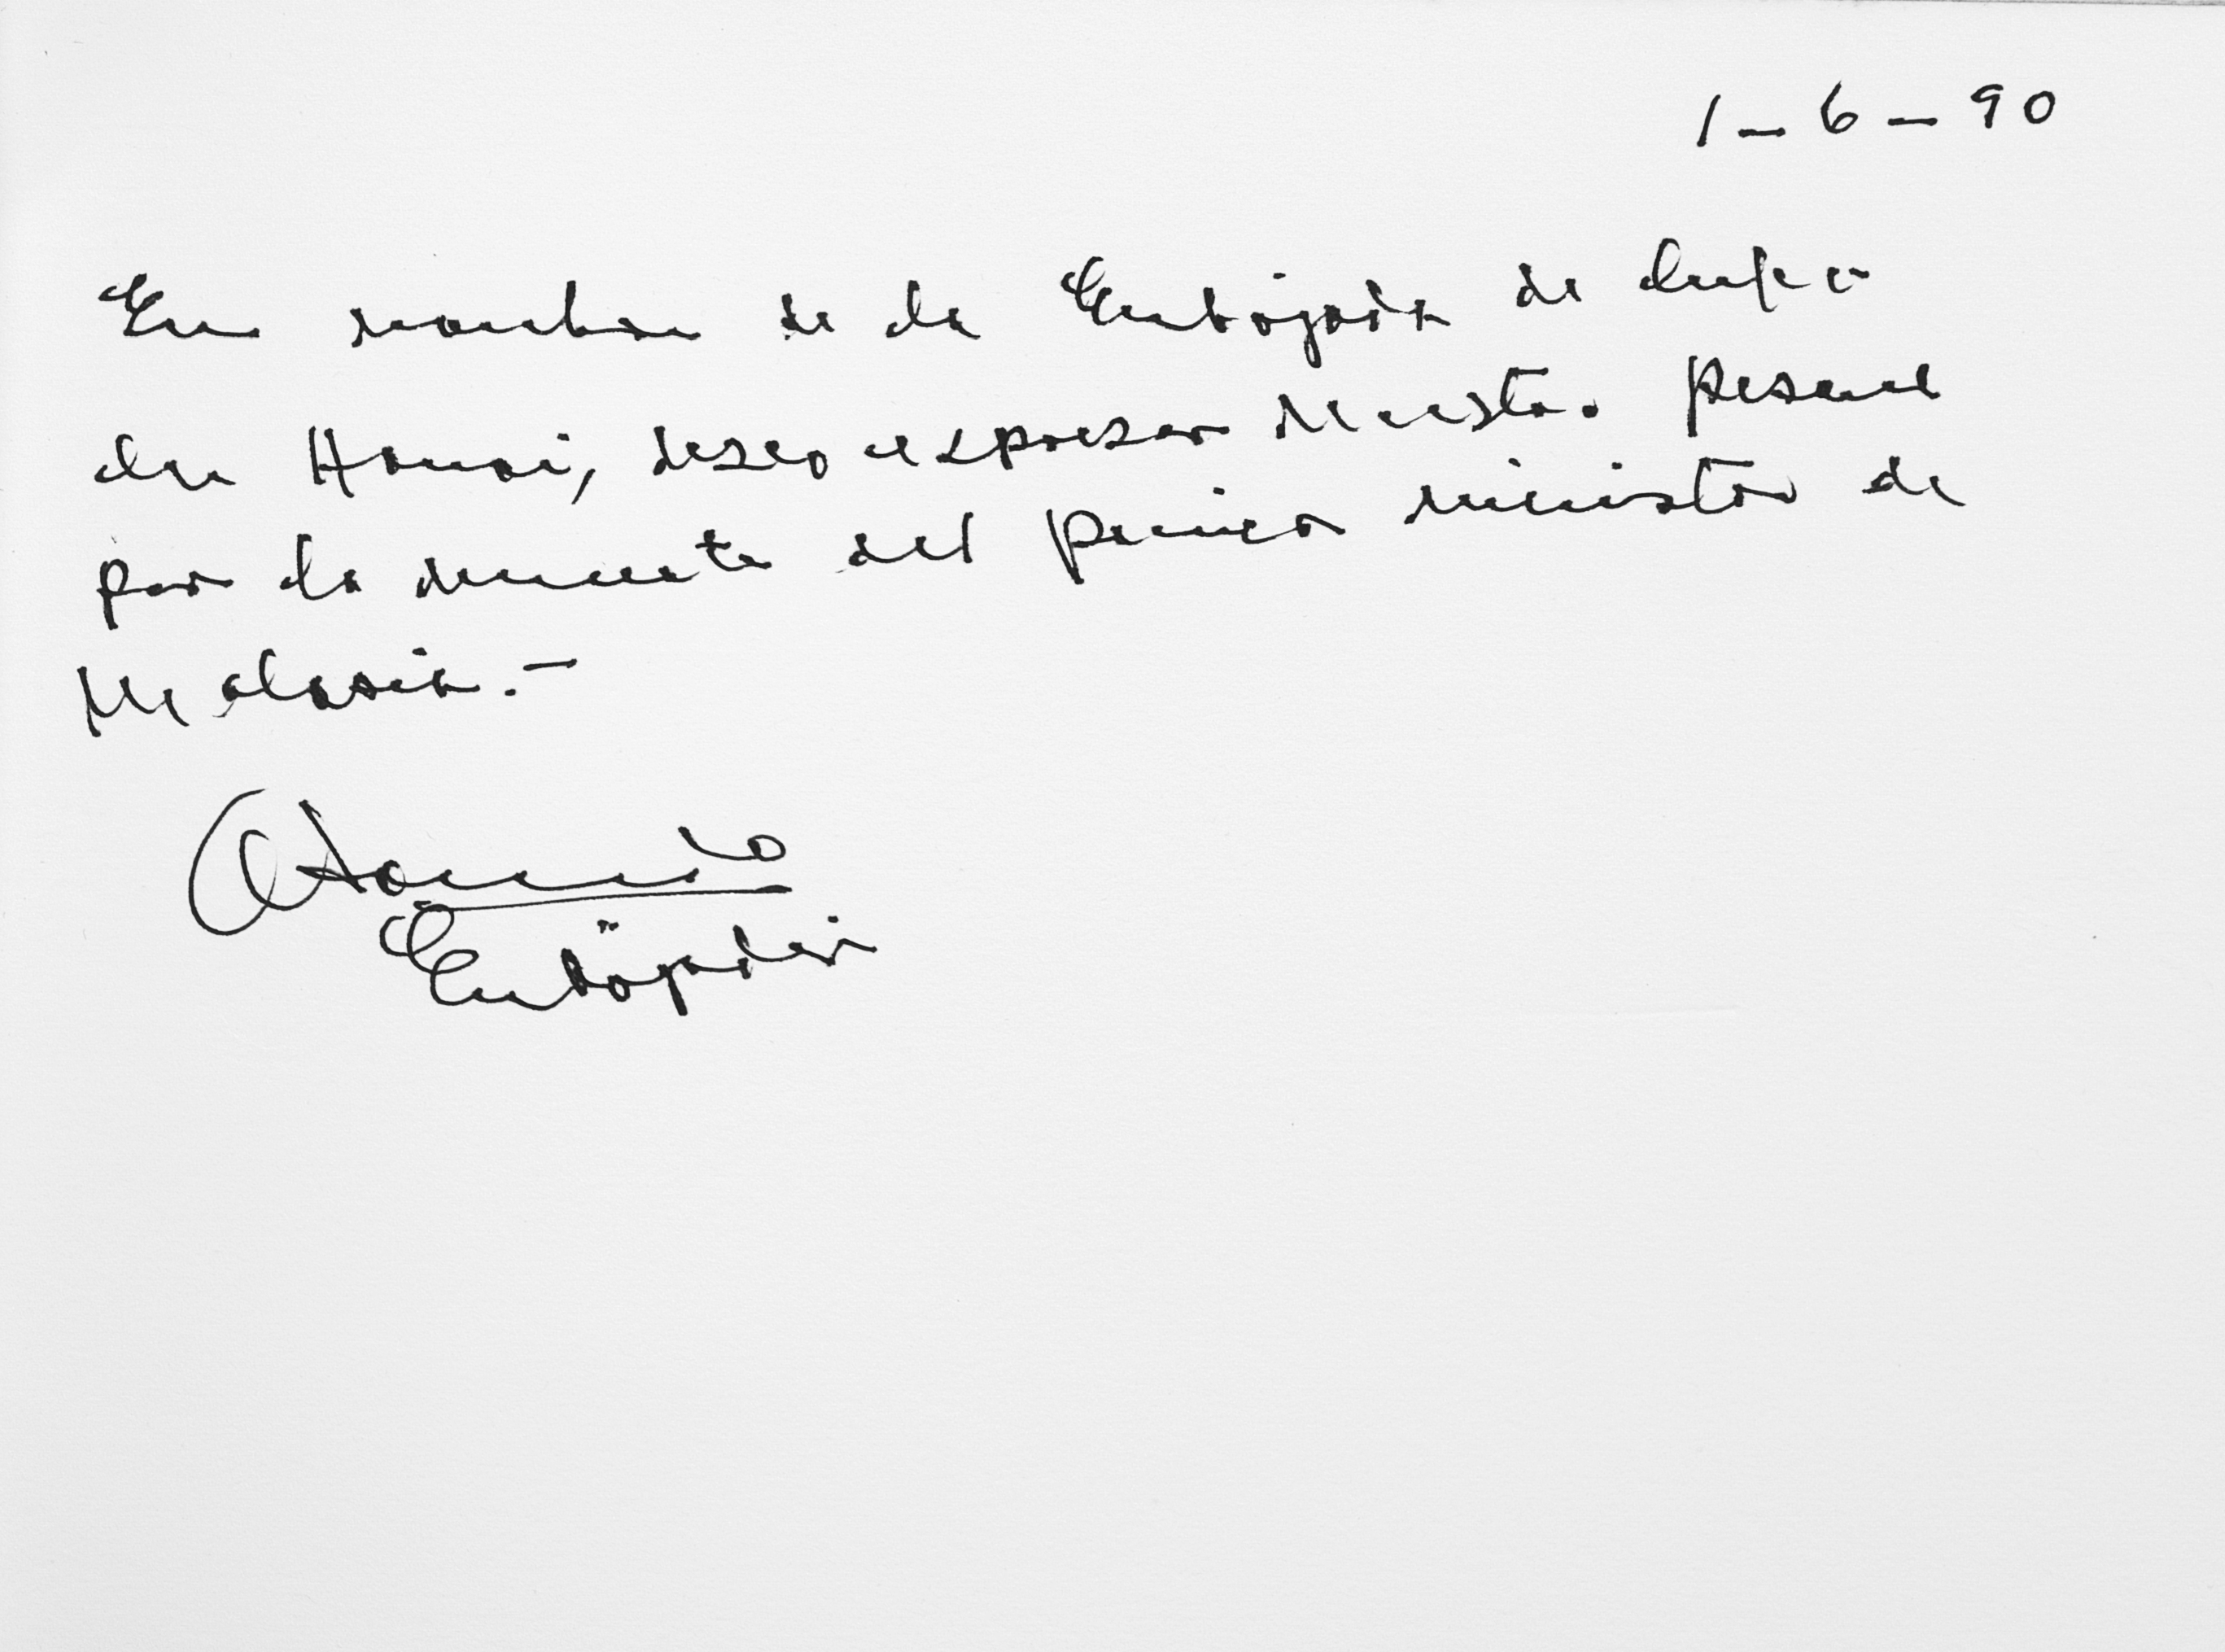 1-6-90
En nombre de la Embajada de
en Hanoi, deseo expresar nuestro pesame
por la muerte del primer ministro de
Malasia.-
Embajador